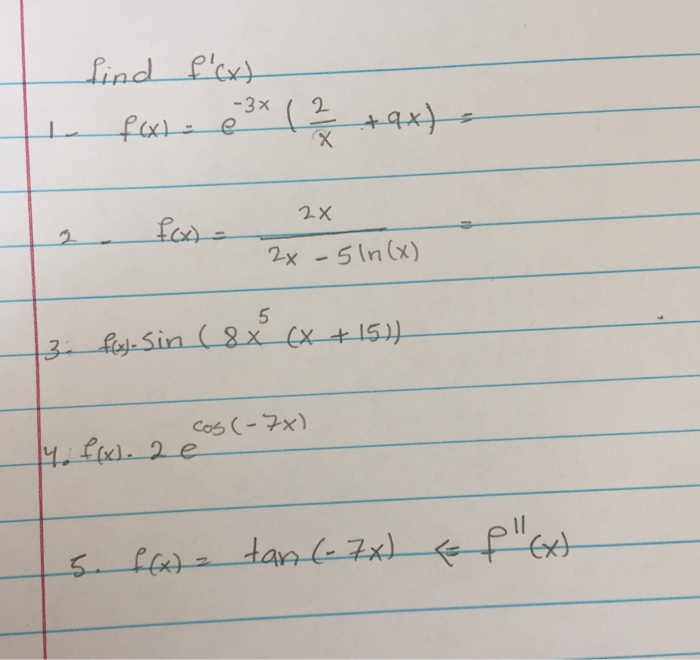 find f'(x)
1- f(x) = e^{-3x} ( 2/x + 9x) =
2 - f(x) = 2x / (2x - 5 ln(x)) =
3- f(x)- Sin ( 8x^5 (x + 15))
4. f(x). 2 e^{cos(-7x)}
5. f(x) = tan (-7x) ⇐ f''(x)